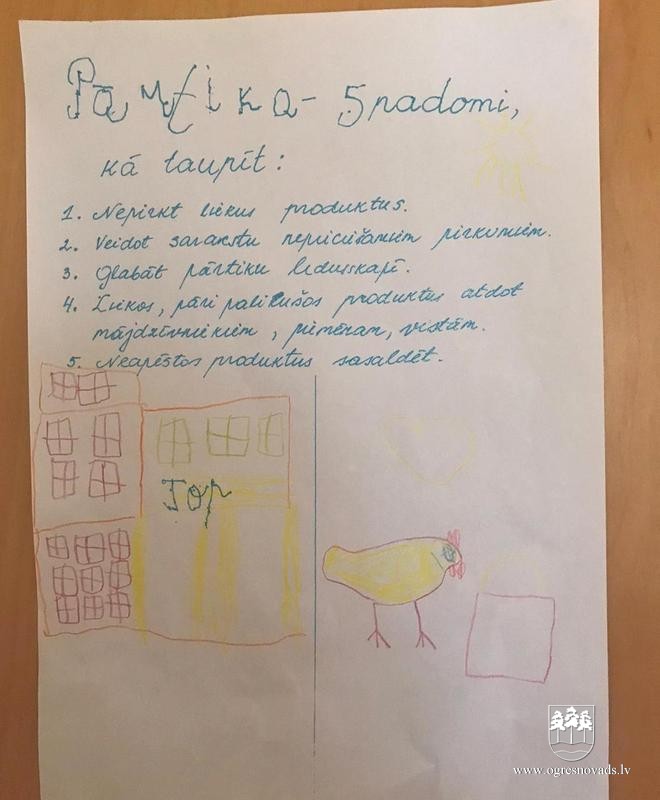 Pārtika - 5 padomi,
kā taupīt:
1. Nepirkt liekus produktus.
2. Veidot sarakstu nepieciešamiem pirkumiem.
3. Glabāt pārtiku ledusskapī.
4. Liekos, pāri palikušos produktus atdot
mājdzīvniekiem, piemēram, vistām.
5. Neapēstos produktus sasaldēt.
Top
www.ogresnovads.lv